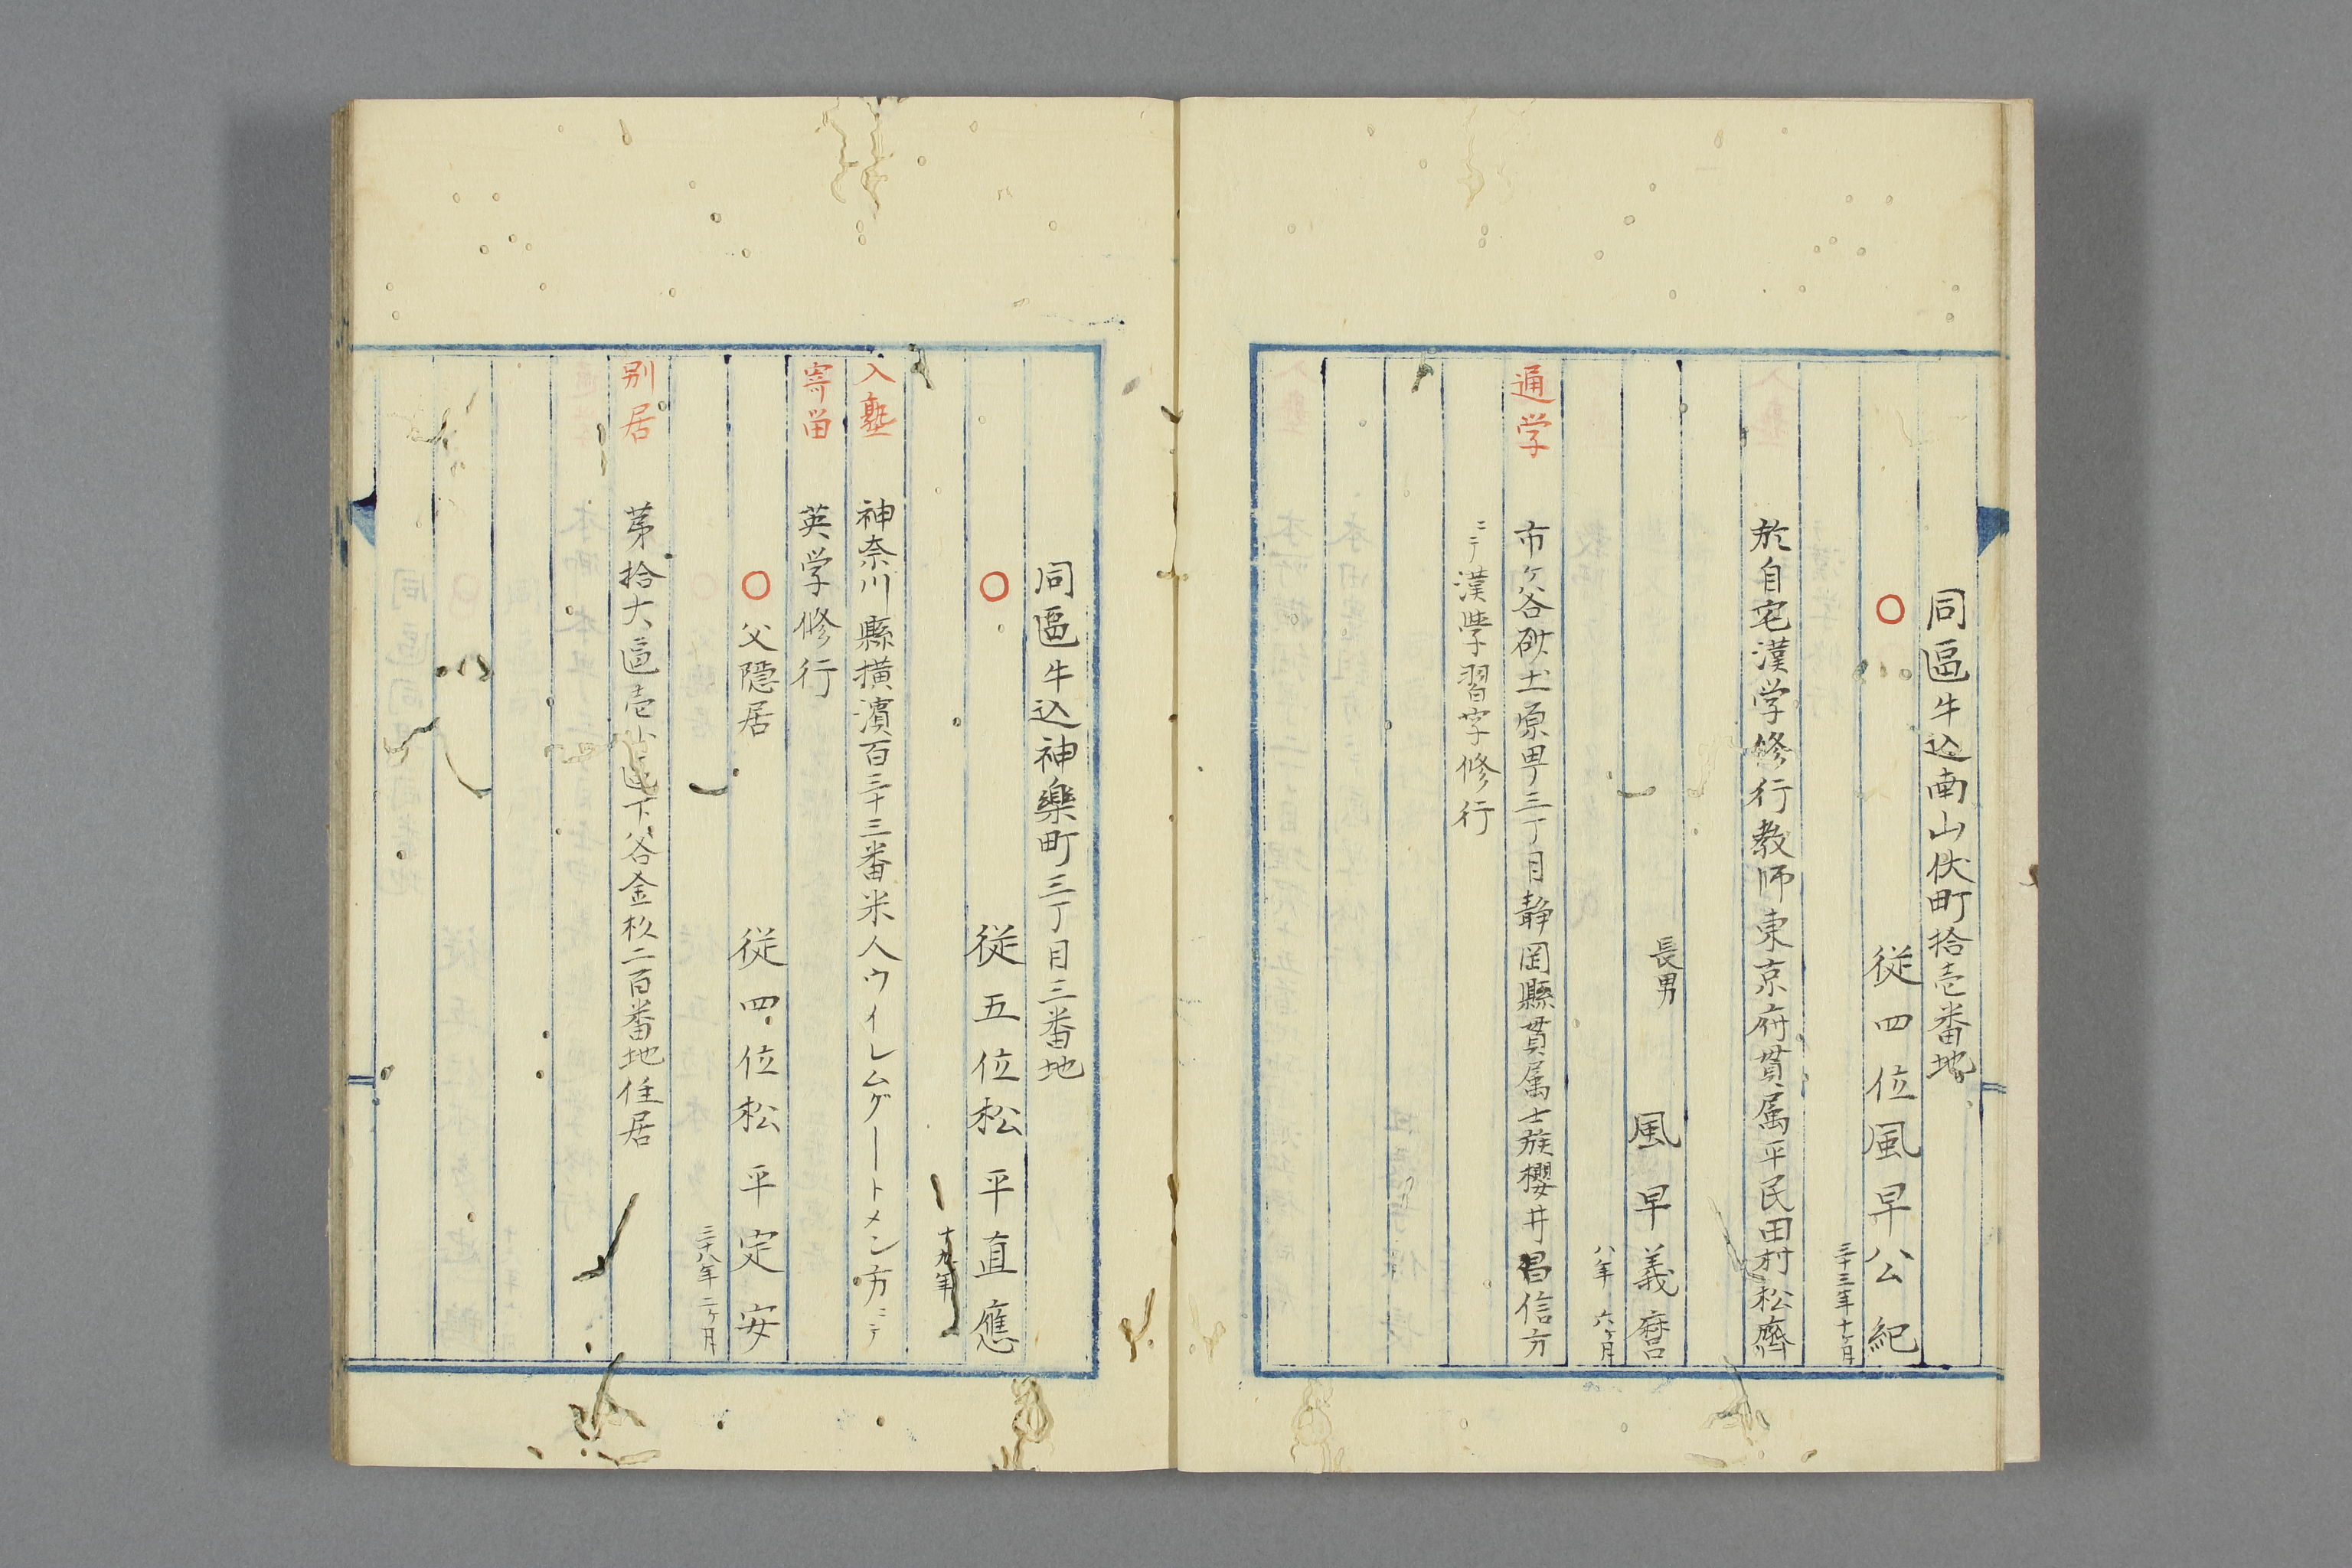 同區牛込南山伏町拾壱番地
○ 従四位風早公紀
三十三年十一ヶ月
於自宅漢学修行教師東京府貫属平民田村松齋
長男
風早義麿
八年六ヶ月
通学 市ヶ谷砂土原町三丁目静岡縣貫属士族櫻井昌信方
ニテ漢學習字修行
同區牛込神樂町三丁目三番地
○ 従五位松平直應
十九年
入塾 神奈川縣横濱百三十三番米人ウイレムグートメン方ニテ
寄留 英学修行
○ 父隠居 従四位松平定安
三十八年二ヶ月
別居 第拾大區壱小區下谷金杉二百番地住居